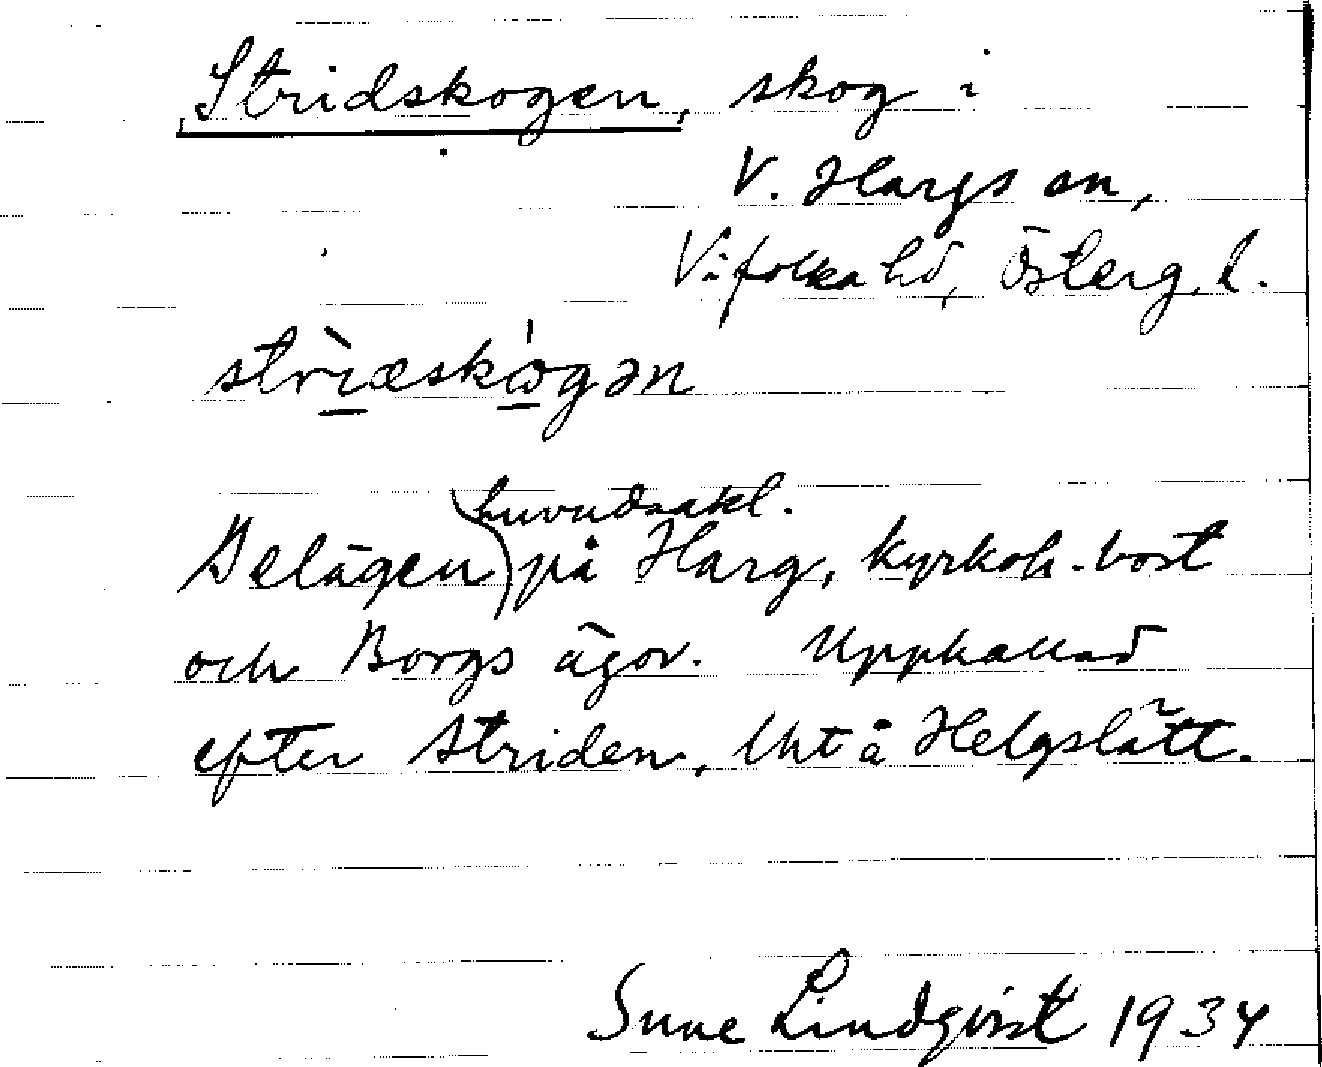 Stridskogen, skog i
V. Hargs sn,
Vifolka hd, Österg. l.
strìæskógən
huvudsakl.
Belägen på Harg, kyrkoh.-bost
och Borgs ägor. Uppkallad
efter Striden, utå Helgslätt.
Sune Lindqvist 1934